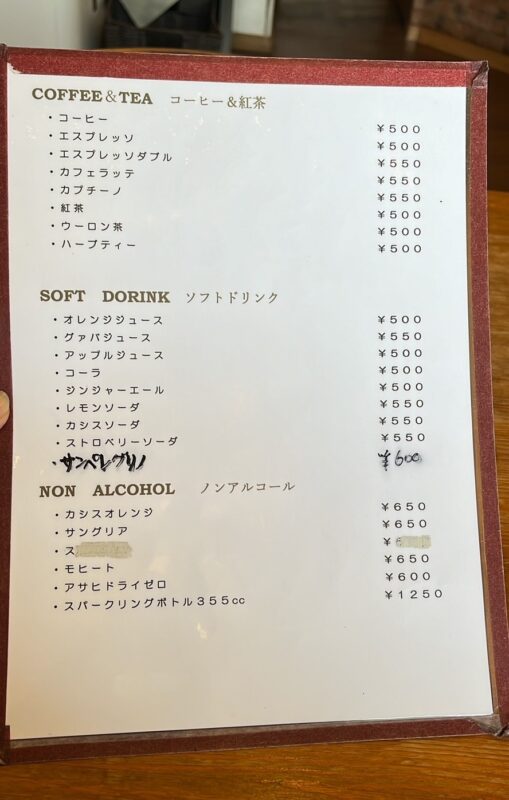 COFFEE&TEA コーヒー&紅茶
・コーヒー ¥500
・エスプレッソ ¥500
・エスプレッソダブル ¥550
・カフェラッテ ¥550
・カプチーノ ¥550
・紅茶 ¥500
・ウーロン茶 ¥500
・ハーブティー ¥500
SOFT DORINK ソフトドリンク
・オレンジジュース ¥500
・グァバジュース ¥500
・アップルジュース ¥500
・コーラ ¥500
・ジンジャーエール ¥500
・レモンソーダ ¥550
・カシスソーダ ¥550
・ストロベリーソーダ ¥550
・サンペレグリノ ¥600
NON ALCOHOL ノンアルコール
・カシスオレンジ ¥650
・サングリア ¥650
・ス ¥
・モヒート ¥650
・アサヒドライゼロ ¥600
・スパークリングボトル355cc ¥1250